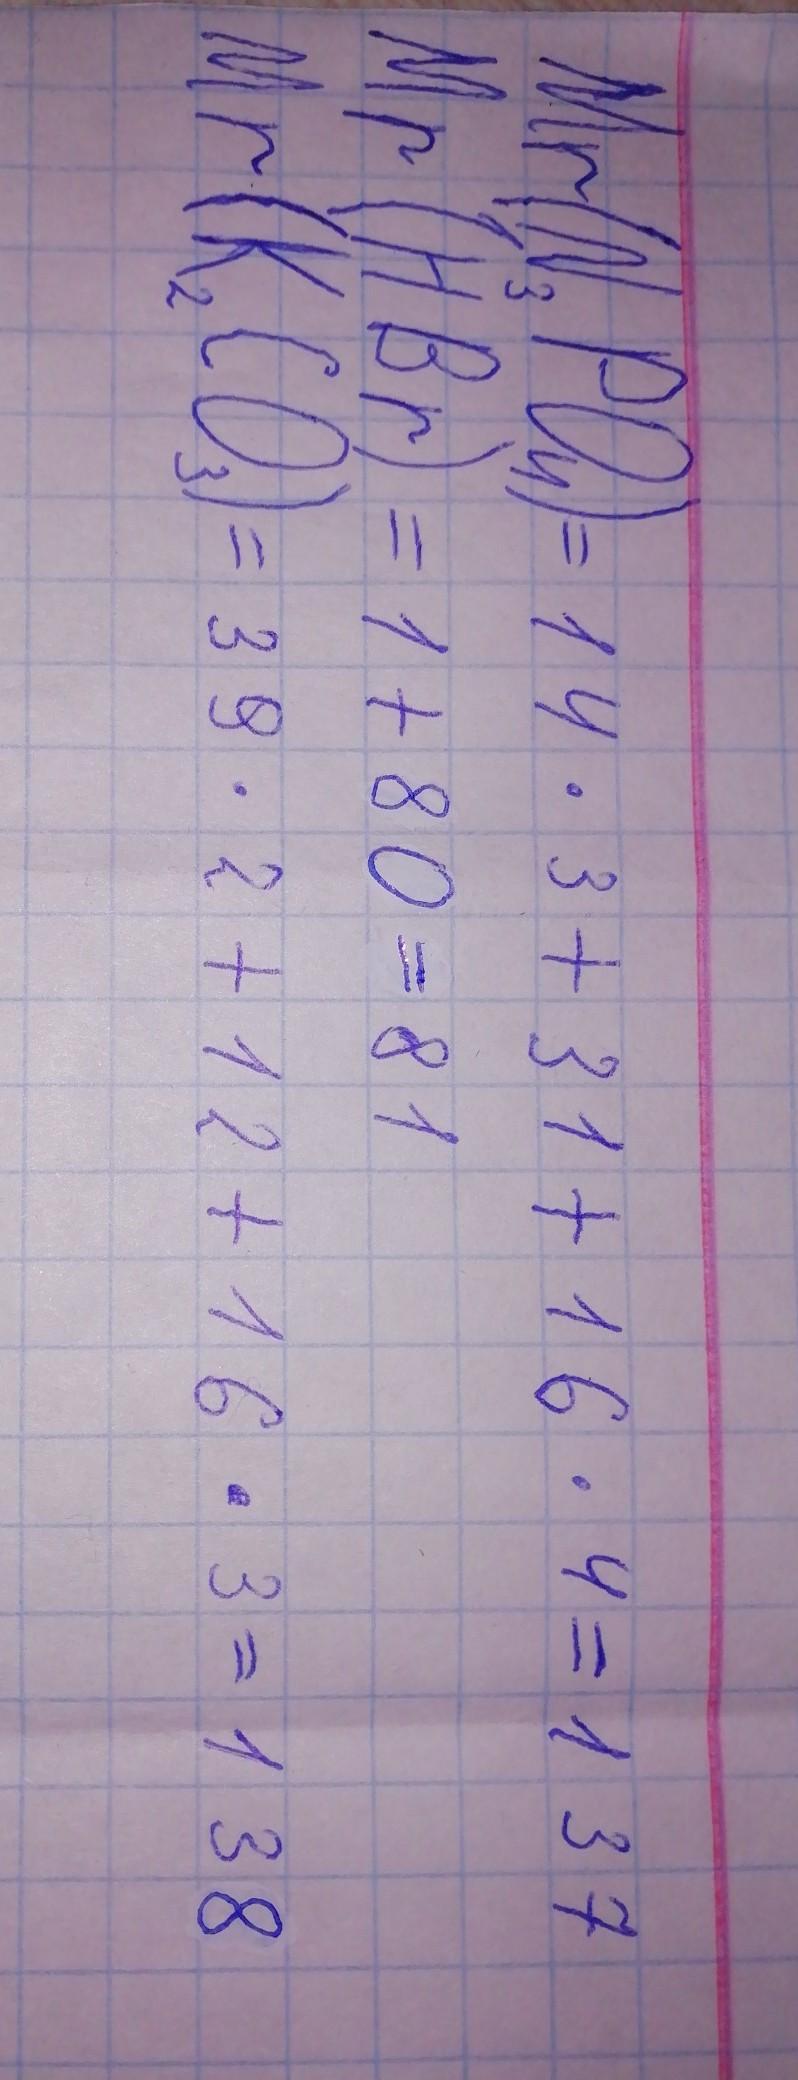 Mr(N₃PO₄) = 14 · 3 + 31 + 16 · 4 = 137
Mr(HBr) = 1 + 80 = 81
Mr(K₂CO₃) = 39 · 2 + 12 + 16 · 3 = 138